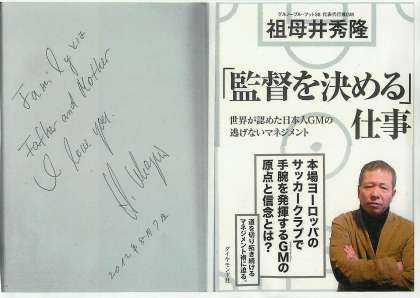 Family xxx
Father and Mother
I love you.
2012年8月7日
グルノーブル・フット38 代表代行兼GM
祖母井秀隆
「監督を決める」
仕事
世界が認めた日本人GMの
逃げないマネジメント
本場ヨーロッパの
サッカークラブで
手腕を発揮するGMの
原点と信念とは?
道を切り拓き続ける
マネジメント術に迫る。
ダイヤモンド社